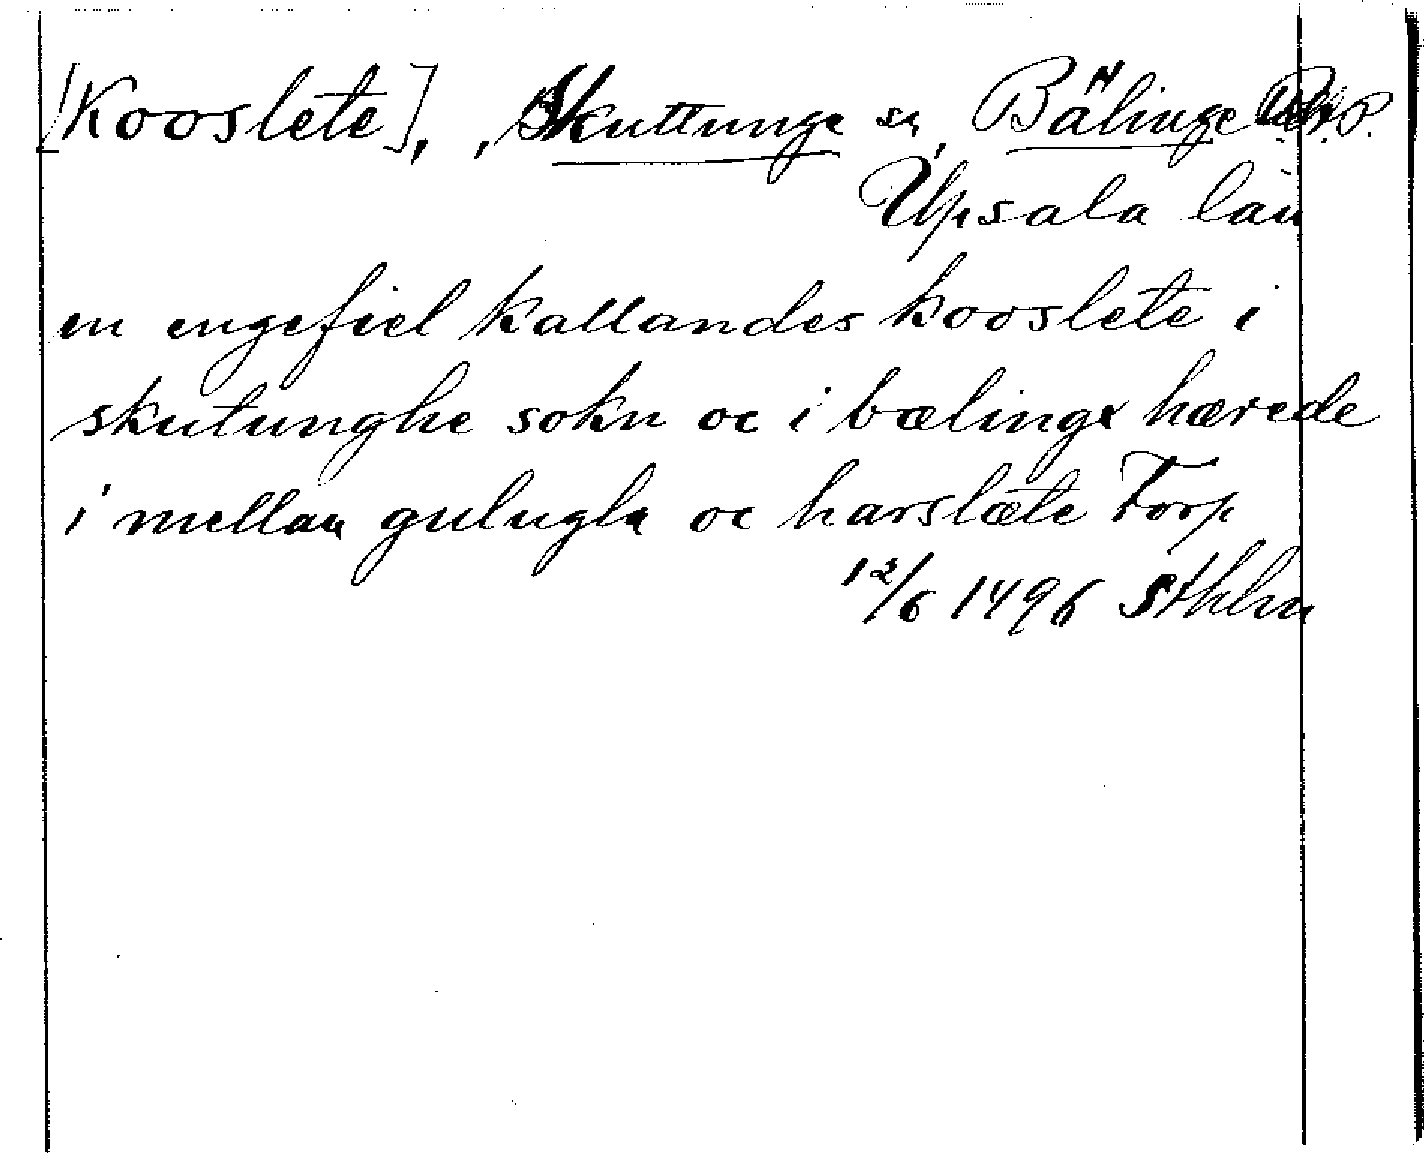 [Kooslete], , Skuttunge sn, Bälinge
Upsala län
en engefiel kallandes kooslete i
skutunghe sokn oc i bælinge hærede
i mellan gulugla oc harslæte Torp
12/6 1496 Sthlm